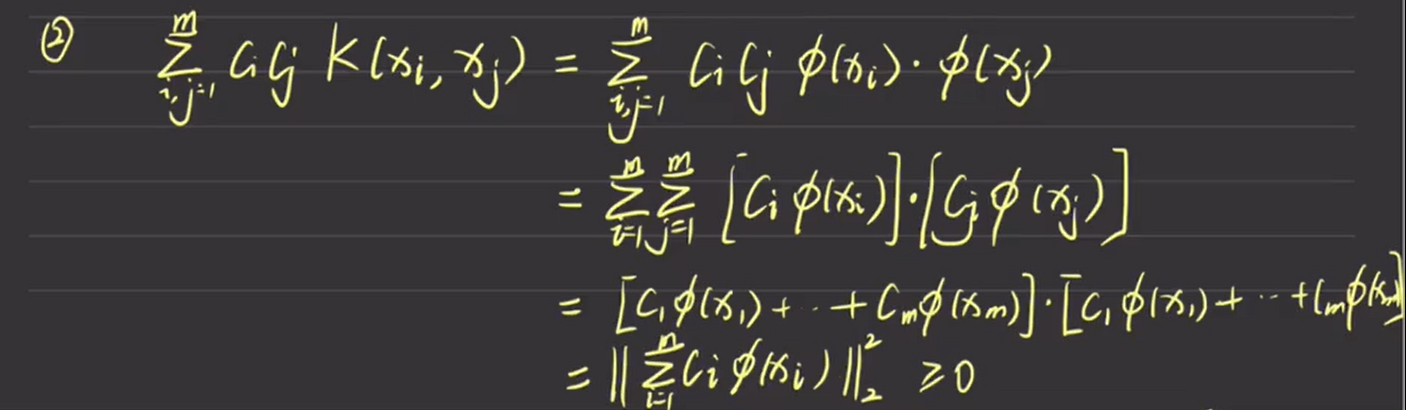 ② $\sum_{i,j=1}^{m} C_i C_j K(x_i, x_j) = \sum_{i,j=1}^{m} C_i C_j \phi(x_i) \cdot \phi(x_j)$
$= \sum_{i=1}^{m} \sum_{j=1}^{m} [C_i \phi(x_i)] \cdot [C_j \phi(x_j)]$
$= [C_1 \phi(x_1) + \cdots + C_m \phi(x_m)] \cdot [C_1 \phi(x_1) + \cdots + C_m \phi(x_m)]$
$= \| \sum_{i=1}^{m} C_i \phi(x_i) \|_2^2 \geq 0$